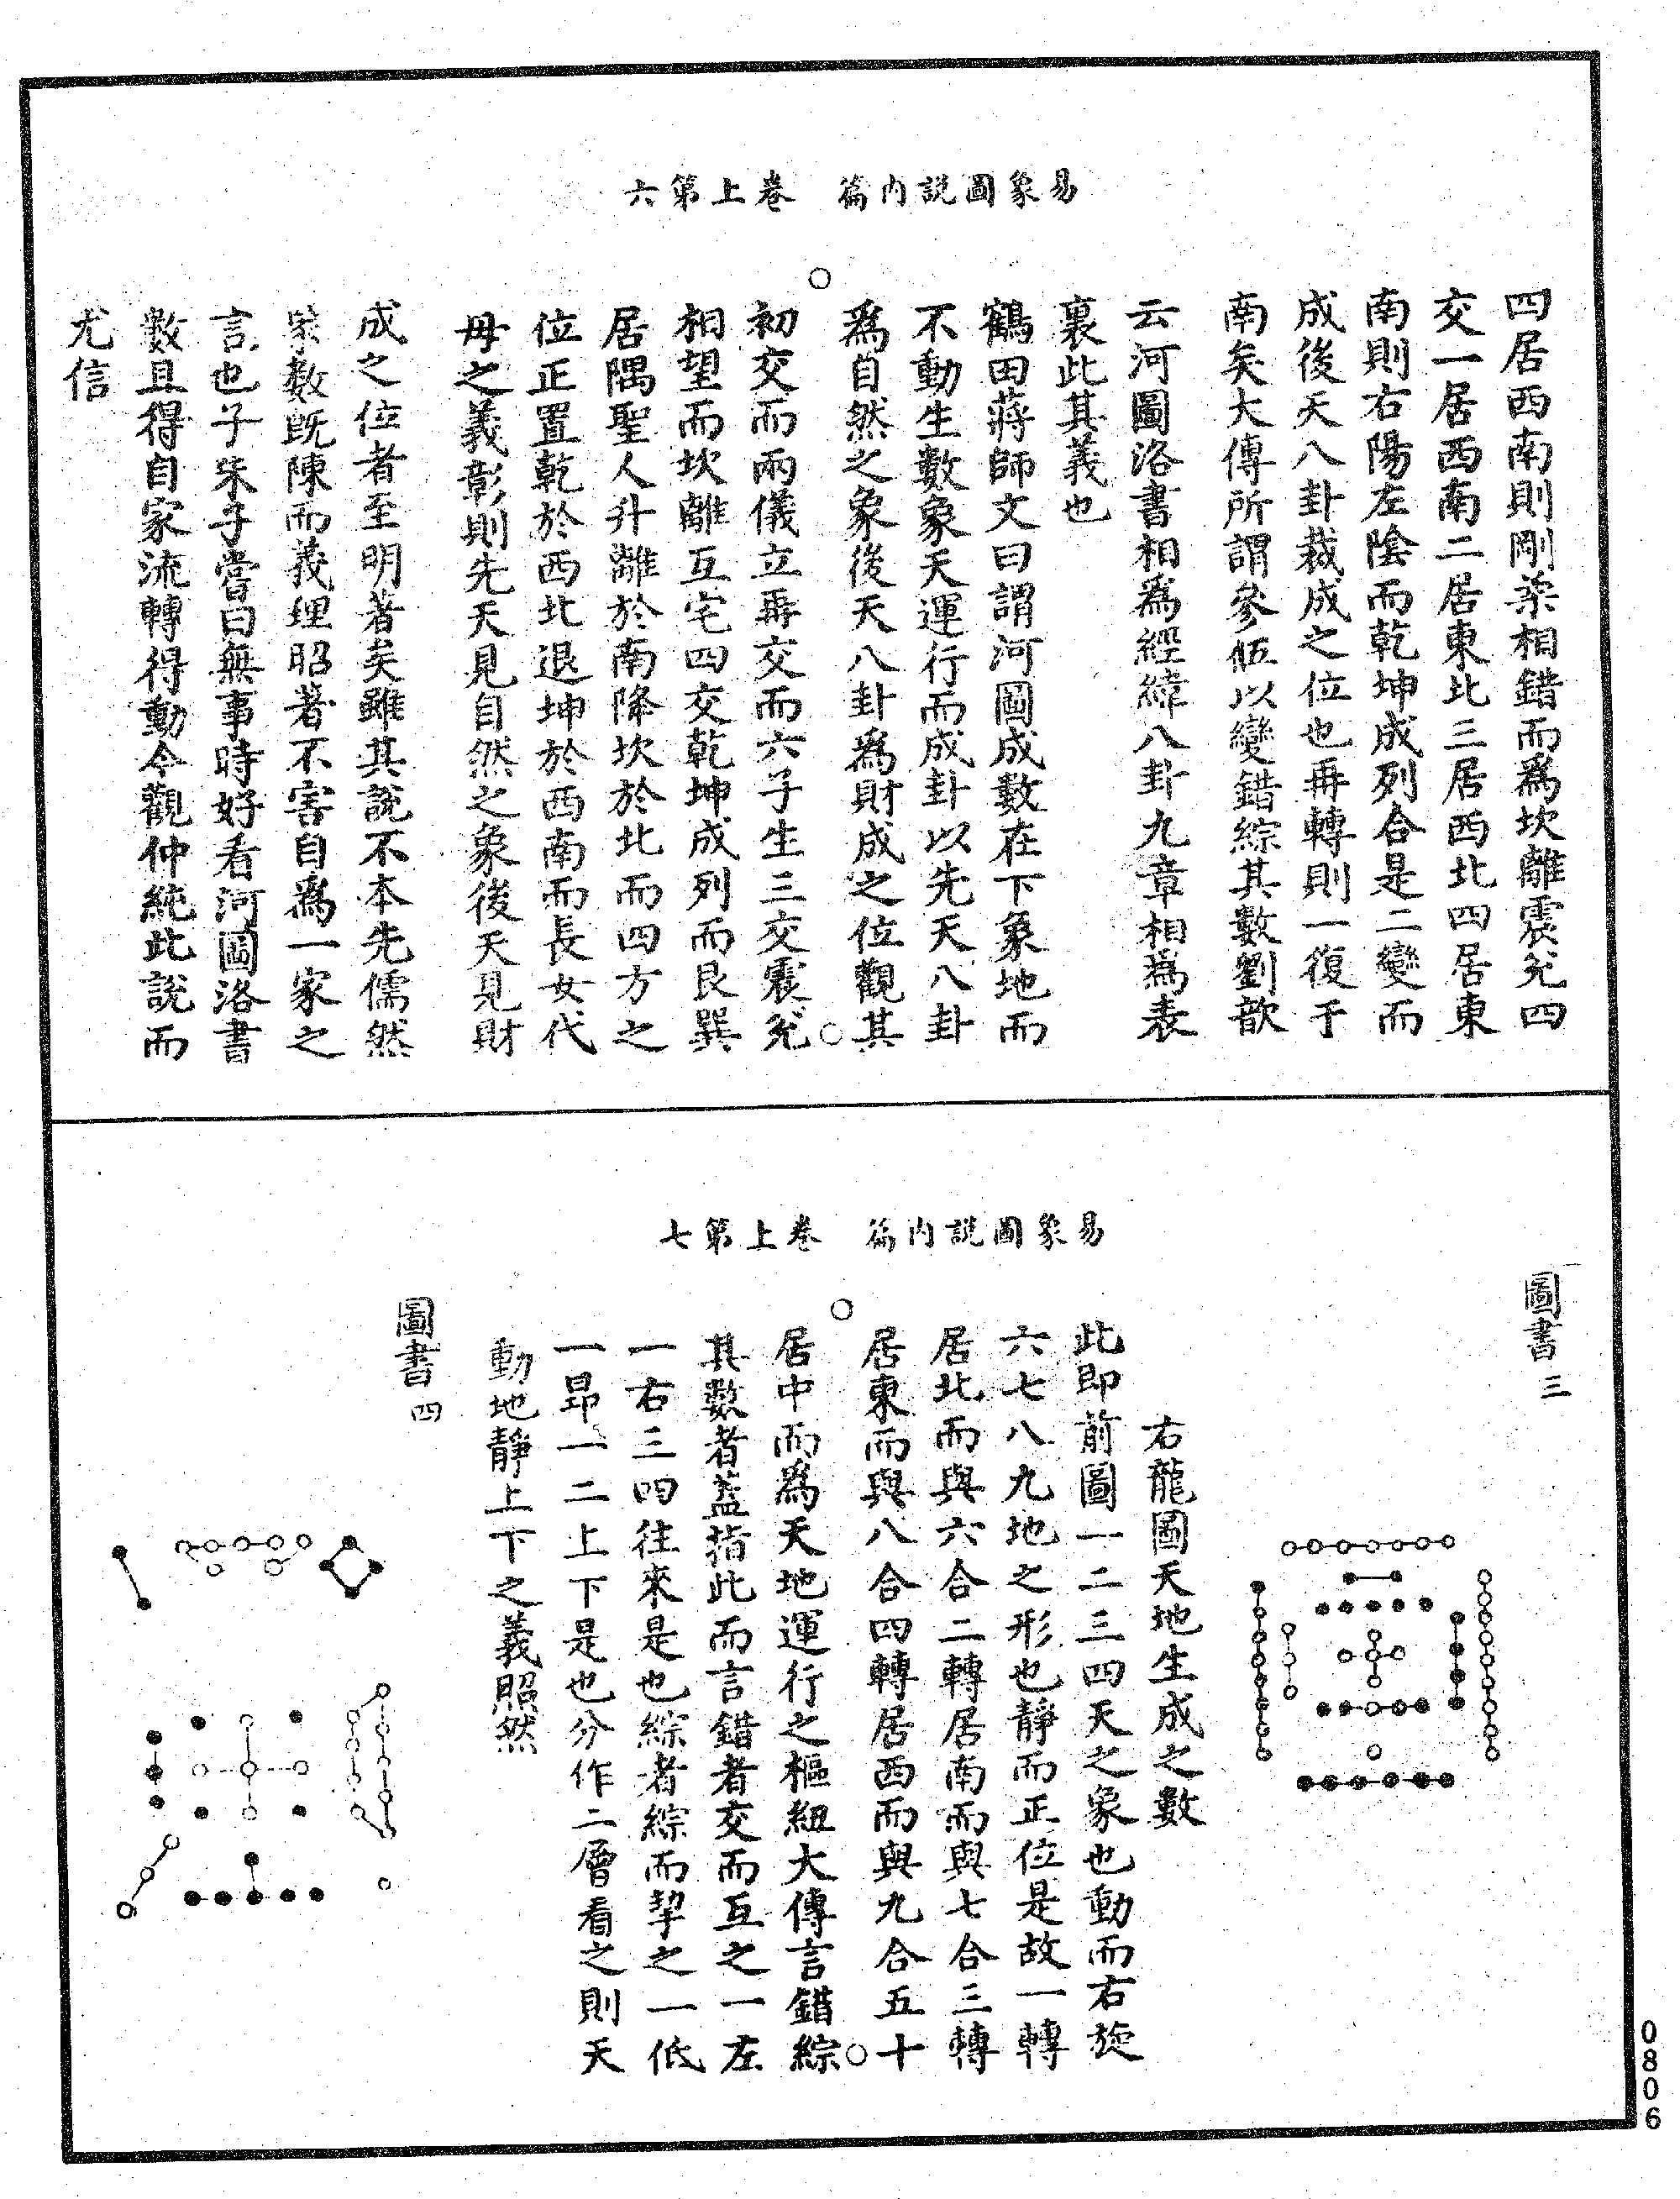 易象圖説内篇　卷上第六
四居西南則剛柒相錯而爲坎離震兊四
交一居西南二居東北三居西北四居東
南則右陽左陰而乾坤成列合是二變而
成後天八卦裁成之位也再轉則一復于
南矣大傳所謂參伍以變錯綜其數劉歆
云河圖洛書相爲經緯八卦九章相爲表
裏此其義也
鶴田蔣師文曰謂河圖成數在下象地而
不動生數象天運行而成卦以先天八卦
爲自然之象後天八卦爲財成之位觀其
初交而兩儀立再交而六子生三交震兊
相望而坎離互宅四交乾坤成列而艮巽
居隅聖人升離於南降坎於北而四方之
位正置乾於西北退坤於西南而長女代
母之義彰則先天見自然之象後天見財
成之位者至明著矣雖其說不本先儒然
象數旣陳而義理昭著不害自爲一家之
言也子朱子嘗曰無事時好看河圖洛書
數且得自家流轉得動今觀仲純此說而
尤信
易象圖説内篇　卷上第七
圖書三
右龍圖天地生成之數
此即前圖一二三四天之象也動而右旋
六七八九地之形也靜而正位是故一轉
居北而與六合二轉居南而與七合三轉
居東而與八合四轉居西而與九合五十
居中而爲天地運行之樞紐大傳言錯綜
其數者蓋指此而言錯者交而互之一左
一右三四往來是也綜者綜而挈之一低
一昂一二上下是也分作二層看之則天
動地靜上下之義照然
圖書四
0806